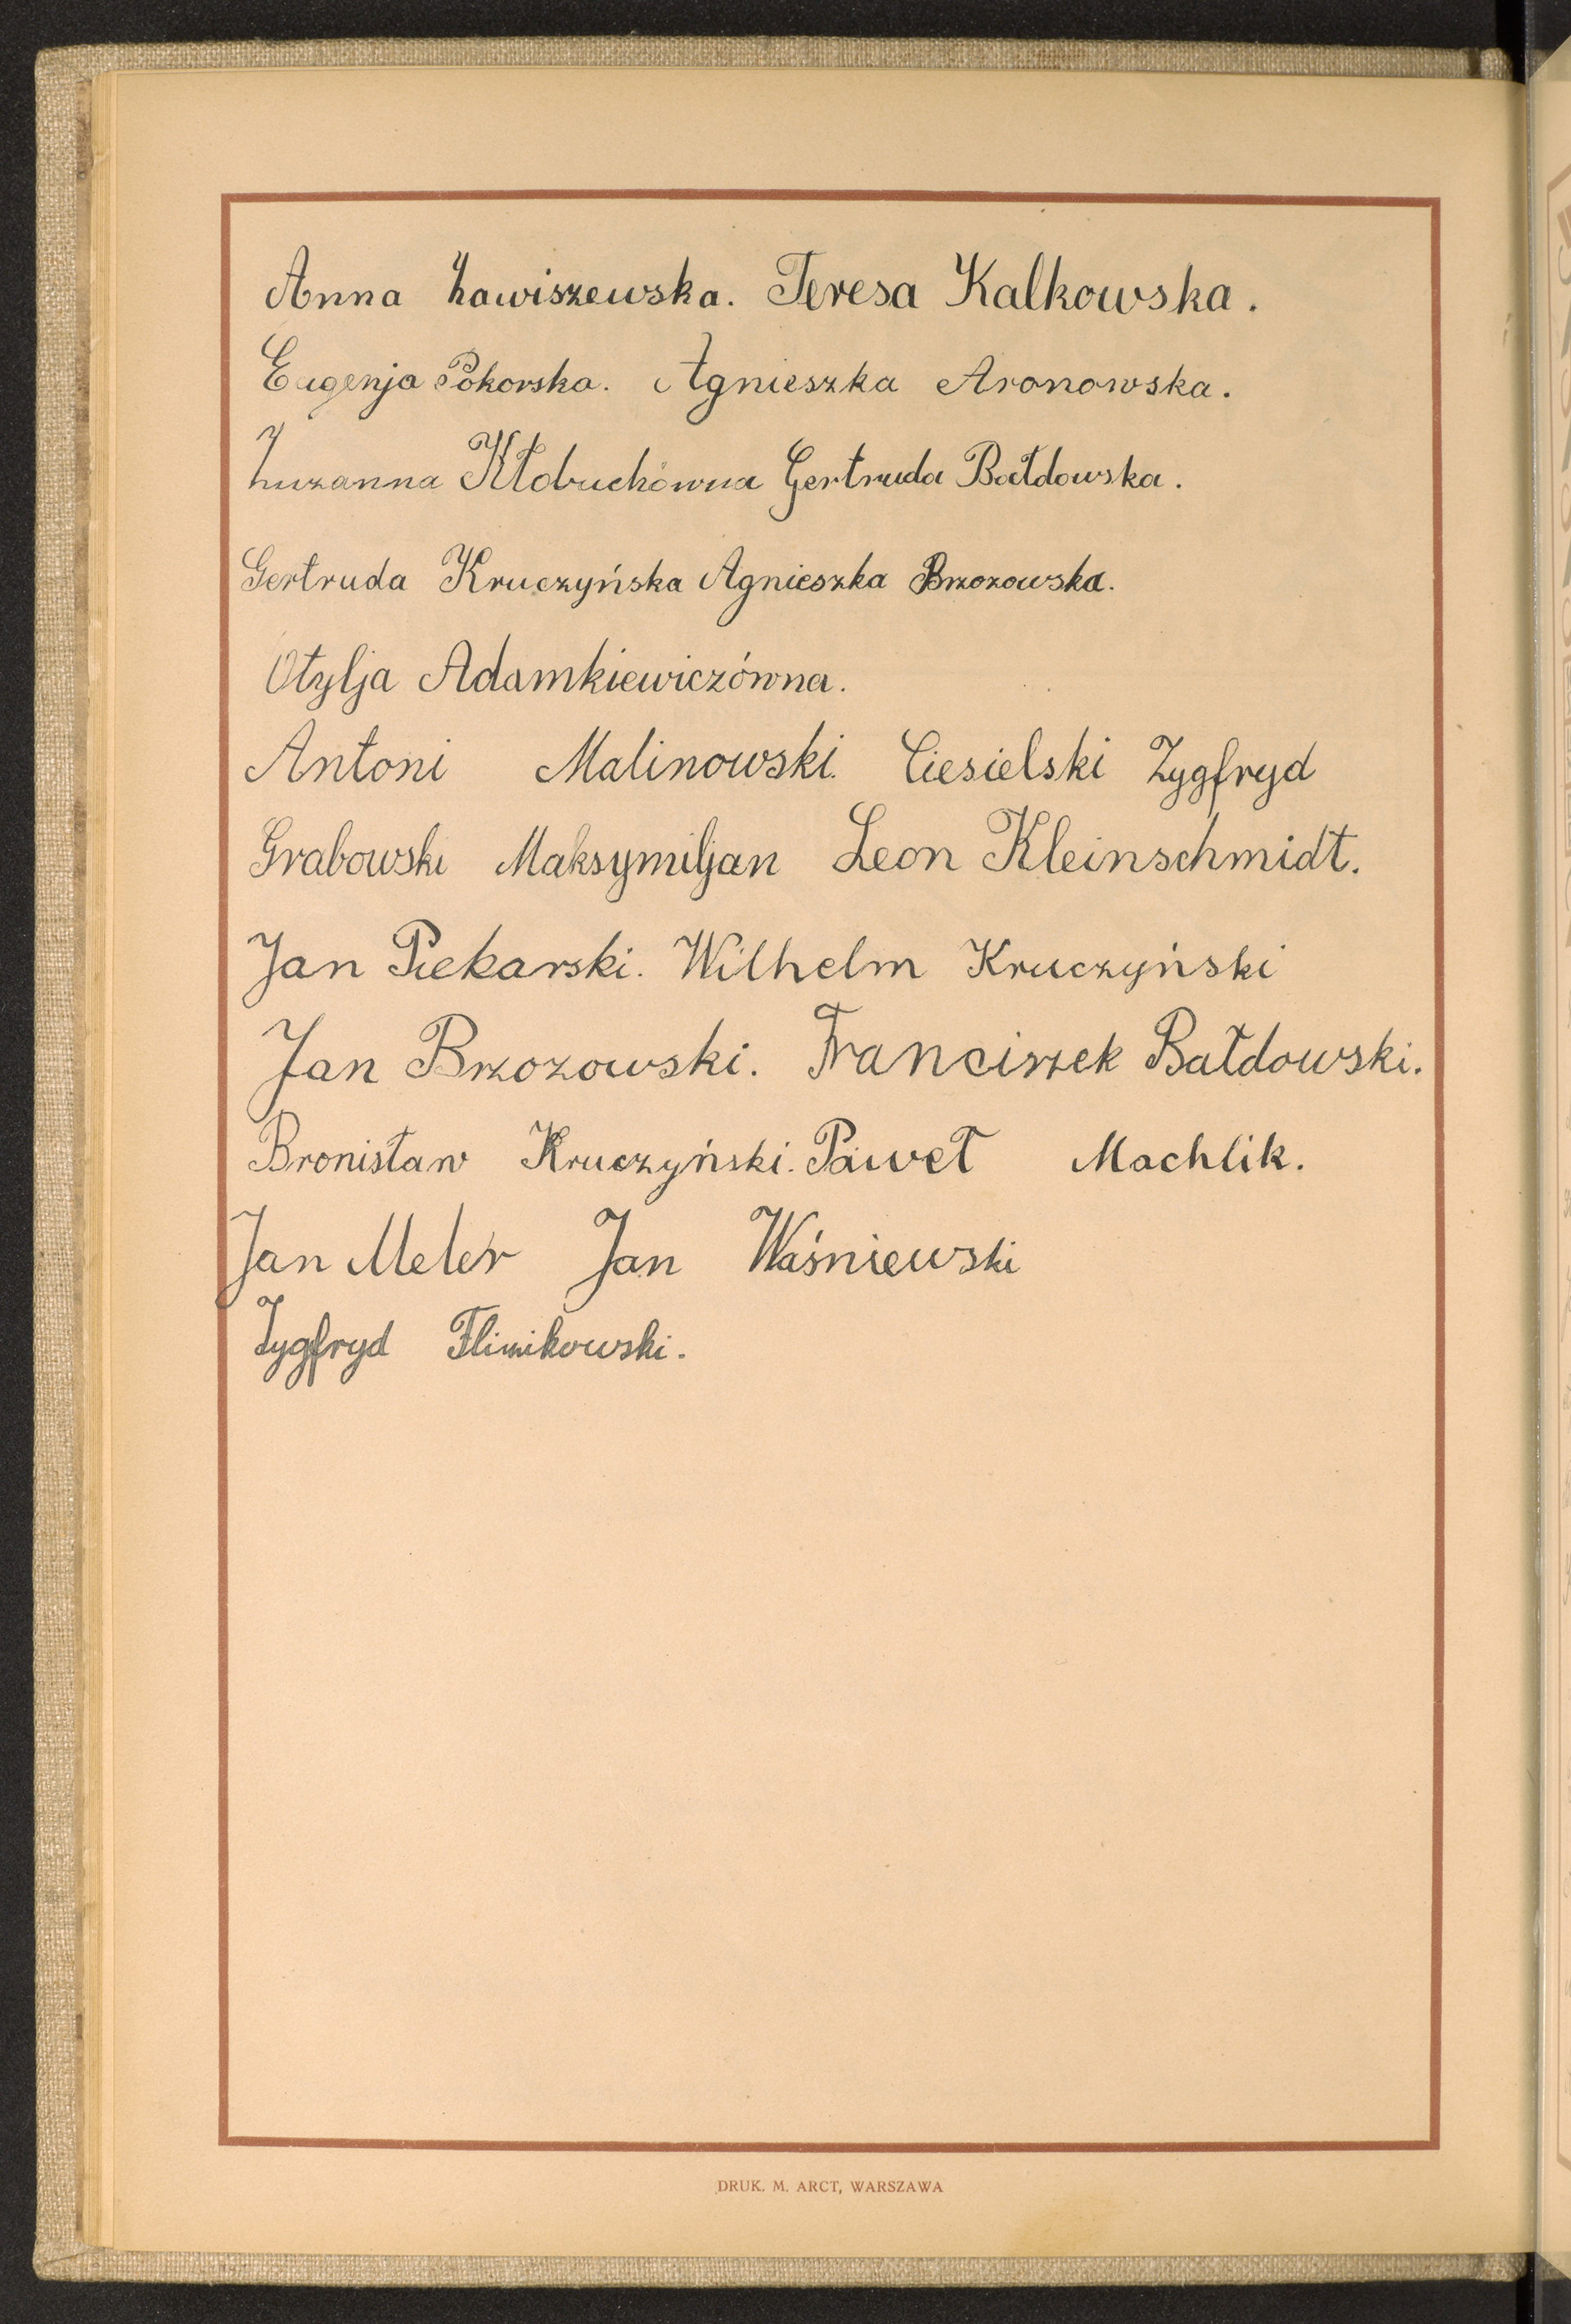 Anna Zawiszewska. Teresa Kalkowska.
Eugenja Pokorska. Agnieszka Aronowska.
Zuzanna Kłobuchówna Gertruda Bałdowska.
Gertruda Kruczyńska Agnieszka Brzozowska.
Otylja Adamkiewiczówna.
Antoni Malinowski. Ciesielski Zygfryd
Grabowski Maksymiljan Leon Kleinschmidt.
Jan Piekarski. Wilhelm Kruczyński
Jan Brzozowski. Franciszek Bałdowski.
Bronisław Kruczyński. Paweł Machlik.
Jan Meler Jan Waśniewski
Zygfryd Flimikowski.
DRUK. M. ARCT, WARSZAWA